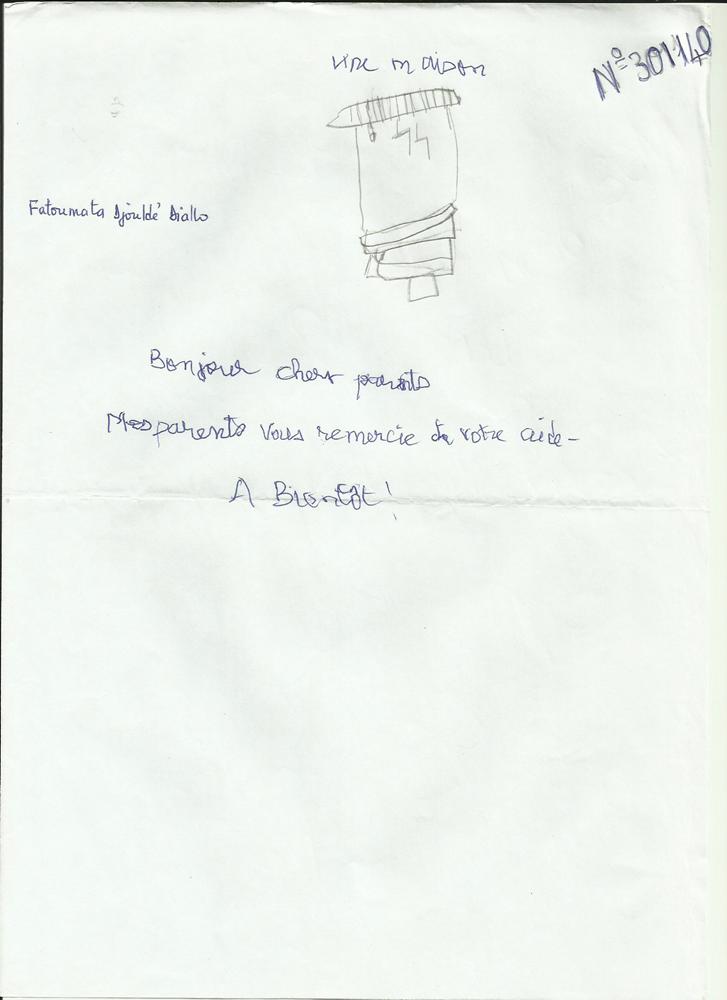 une maison
N° 301140
Fatoumata Djouldé Diallo
Bonjour chers parents
Mes parents vous remercie de votre aide-
A Bientôt!